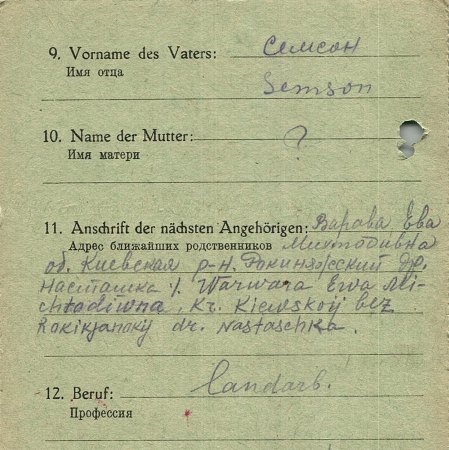 9. Vorname des Vaters: Семсон
Имя отца
Semson
10. Name der Mutter: ?
Имя матери
11. Anschrift der nächsten Angehörigen: Варава Ева
Адрес ближайших родственников
об. Киевская р-н.
Насташка Warwara Ewa Mi-
chtadiwna, Kr. Kiewskoÿ bez
Rakikjanokÿ dr. Nastaschka.
12. Beruf: landarb.
Профессия